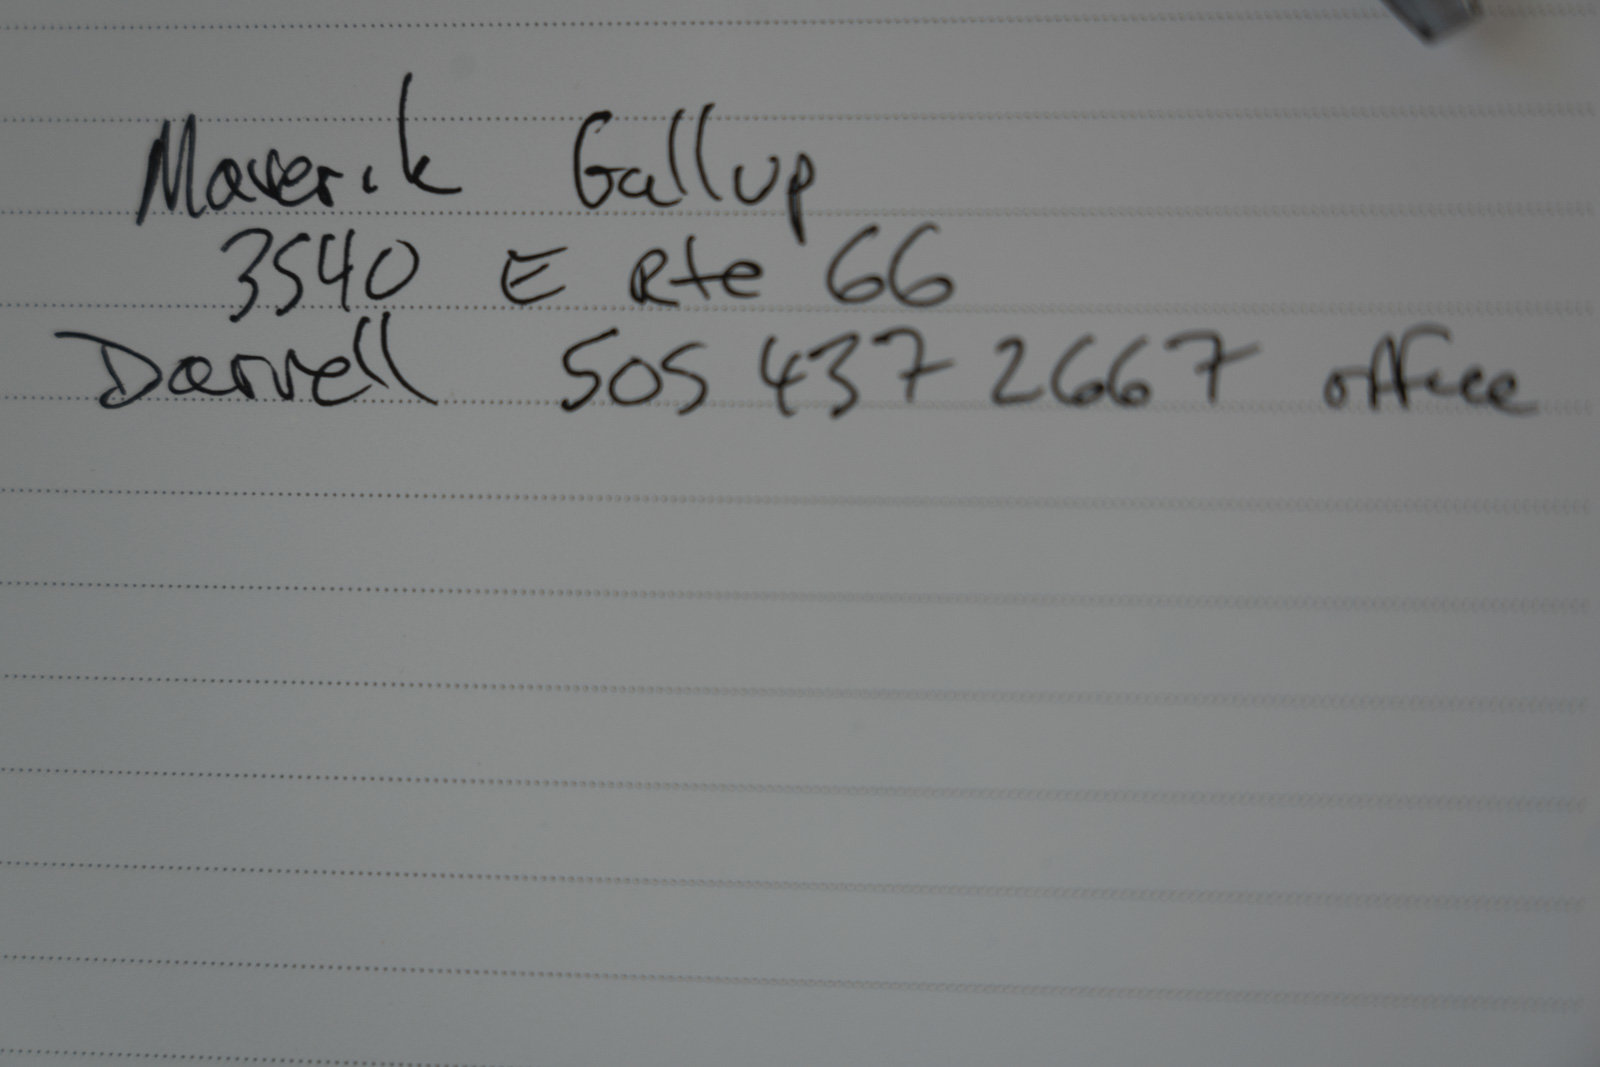 Maverik Gallup
3540 E Rte 66
Darrell 505 437 2667 office